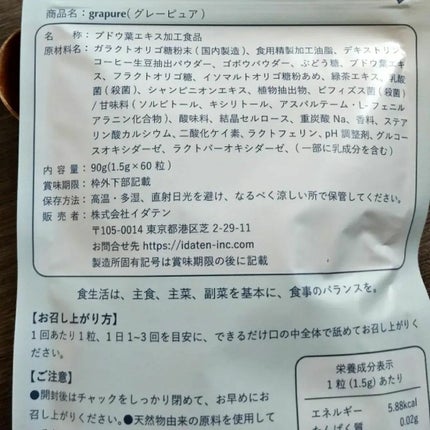 商品名：grapure(グレーピュア)
名　称：ブドウ葉エキス加工食品
原材料名：ガラクトオリゴ糖粉末(国内製造)、食用精製加工油脂、デキストリン、
コーヒー生豆抽出パウダー、ゴボウパウダー、ぶどう糖、ブドウ葉エキ
ス、フラクトオリゴ糖、イソマルトオリゴ糖粉あめ、緑茶エキス、乳酸
菌(殺菌)、シャンピニオンエキス、植物抽出物、ビフィズス菌(殺菌)
/甘味料(ソルビトール、キシリトール、アスパルテーム・L-フェニル
アラニン化合物)、酸味料、結晶セルロース、重炭酸Na、香料、ステア
リン酸カルシウム、二酸化ケイ素、ラクトフェリン、pH調整剤、グルコー
スオキシダーゼ、ラクトパーオキシダーゼ、(一部に乳成分を含む)
内 容 量：90g(1.5g×60粒)
賞味期限：枠外下部記載
保存方法：高温・多湿、直射日光を避け、なるべく涼しい所で保管してください。
販 売 者：株式会社イダテン
〒105-0014 東京都港区芝 2-29-11
お問合せ先 https://idaten-inc.com
製造所固有記号は賞味期限の後に記載
食生活は、主食、主菜、副菜を基本に、食事のバランスを。
【お召し上がり方】
1回あたり1粒、1日1~3回を目安に、できるだけ口の中全体で舐めてお召し上がりく
ださい。
【ご注意】
●開封後はチャックをしっかり閉めて、お早めにお
召し上がりください。●天然物由来の原料を使用して
栄養成分表示
1粒(1.5g)あたり
エネルギー 5.88kcal
たんぱく質 0.02g